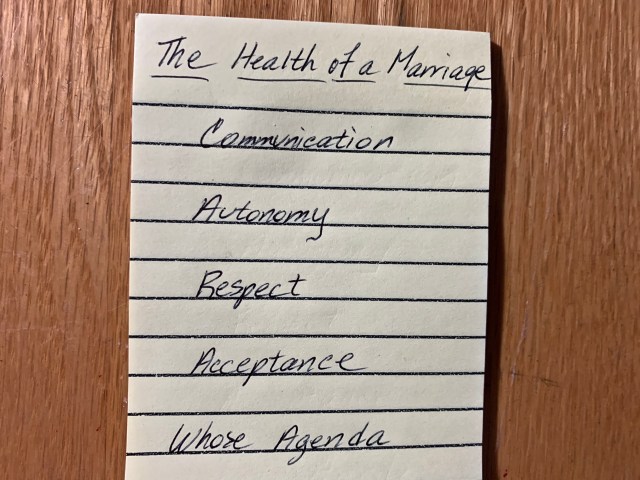 The Health of a Marriage
Communication
Autonomy
Respect
Acceptance
Whose Agenda